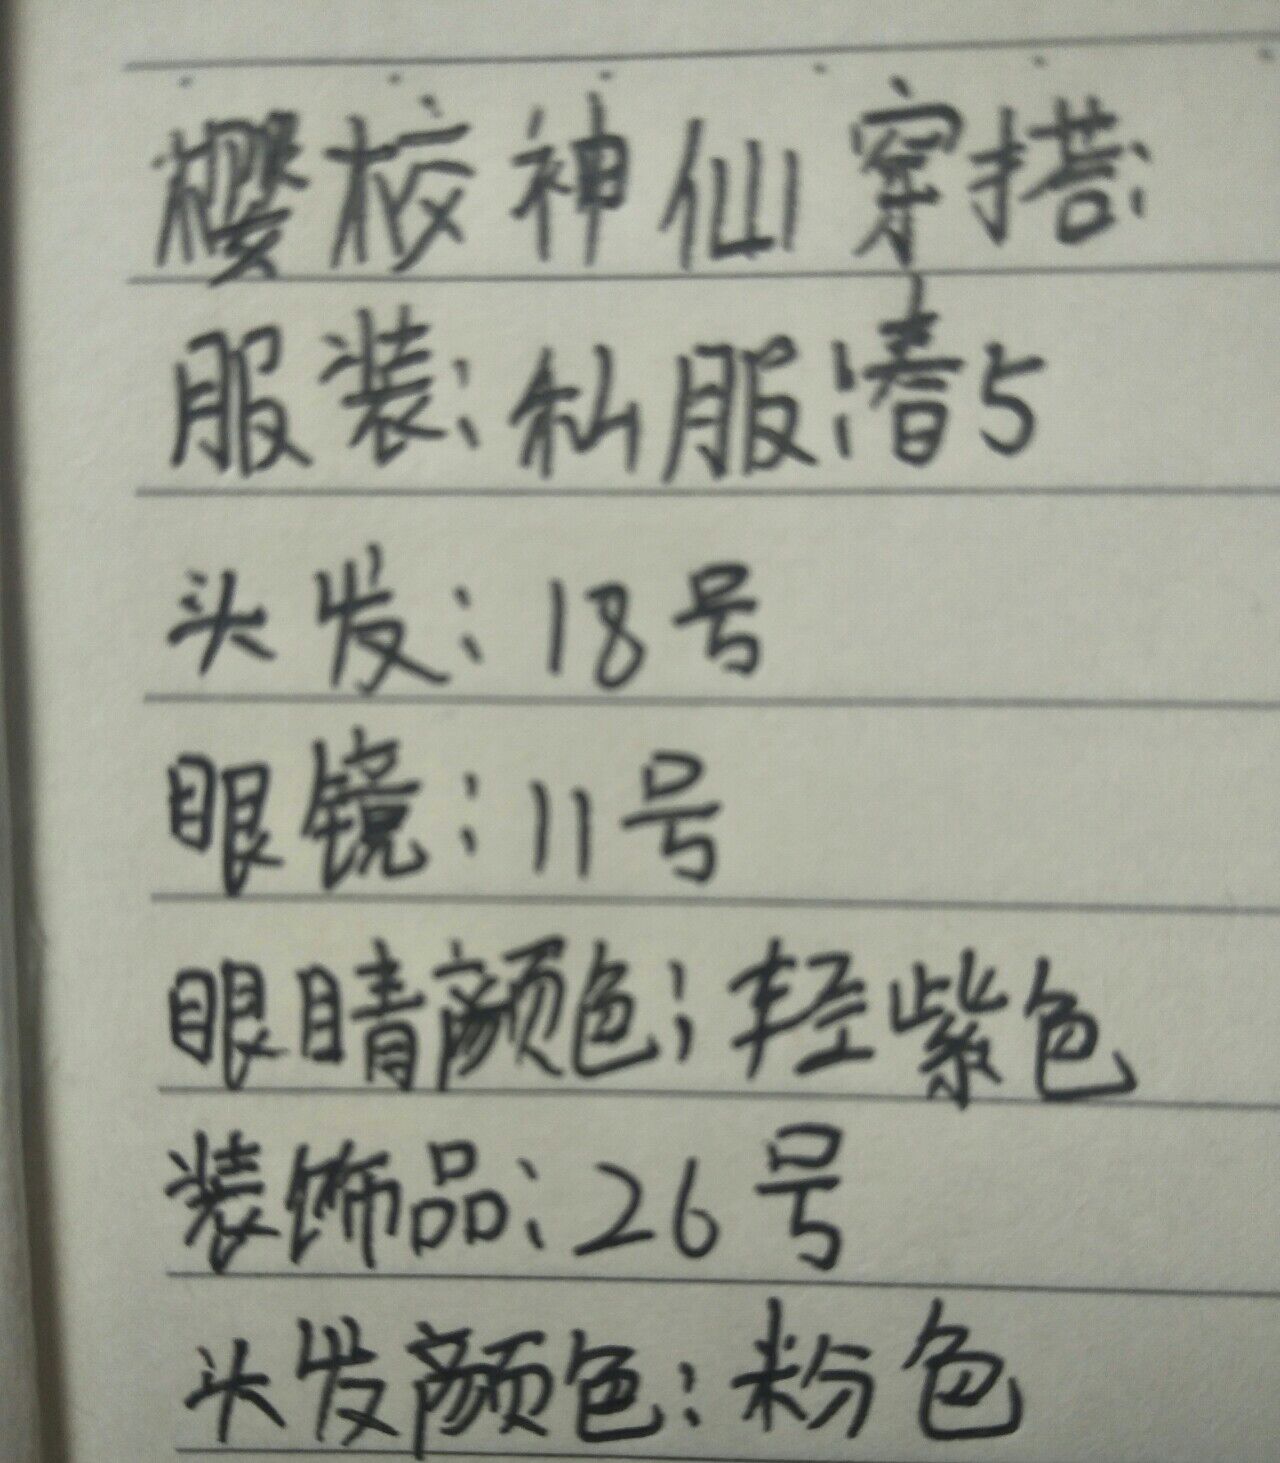 樱校神仙穿搭:
服装:仙服清5
头发:18号
眼镜:11号
眼睛颜色:轻紫色
装饰品:26号
头发颜色:粉色